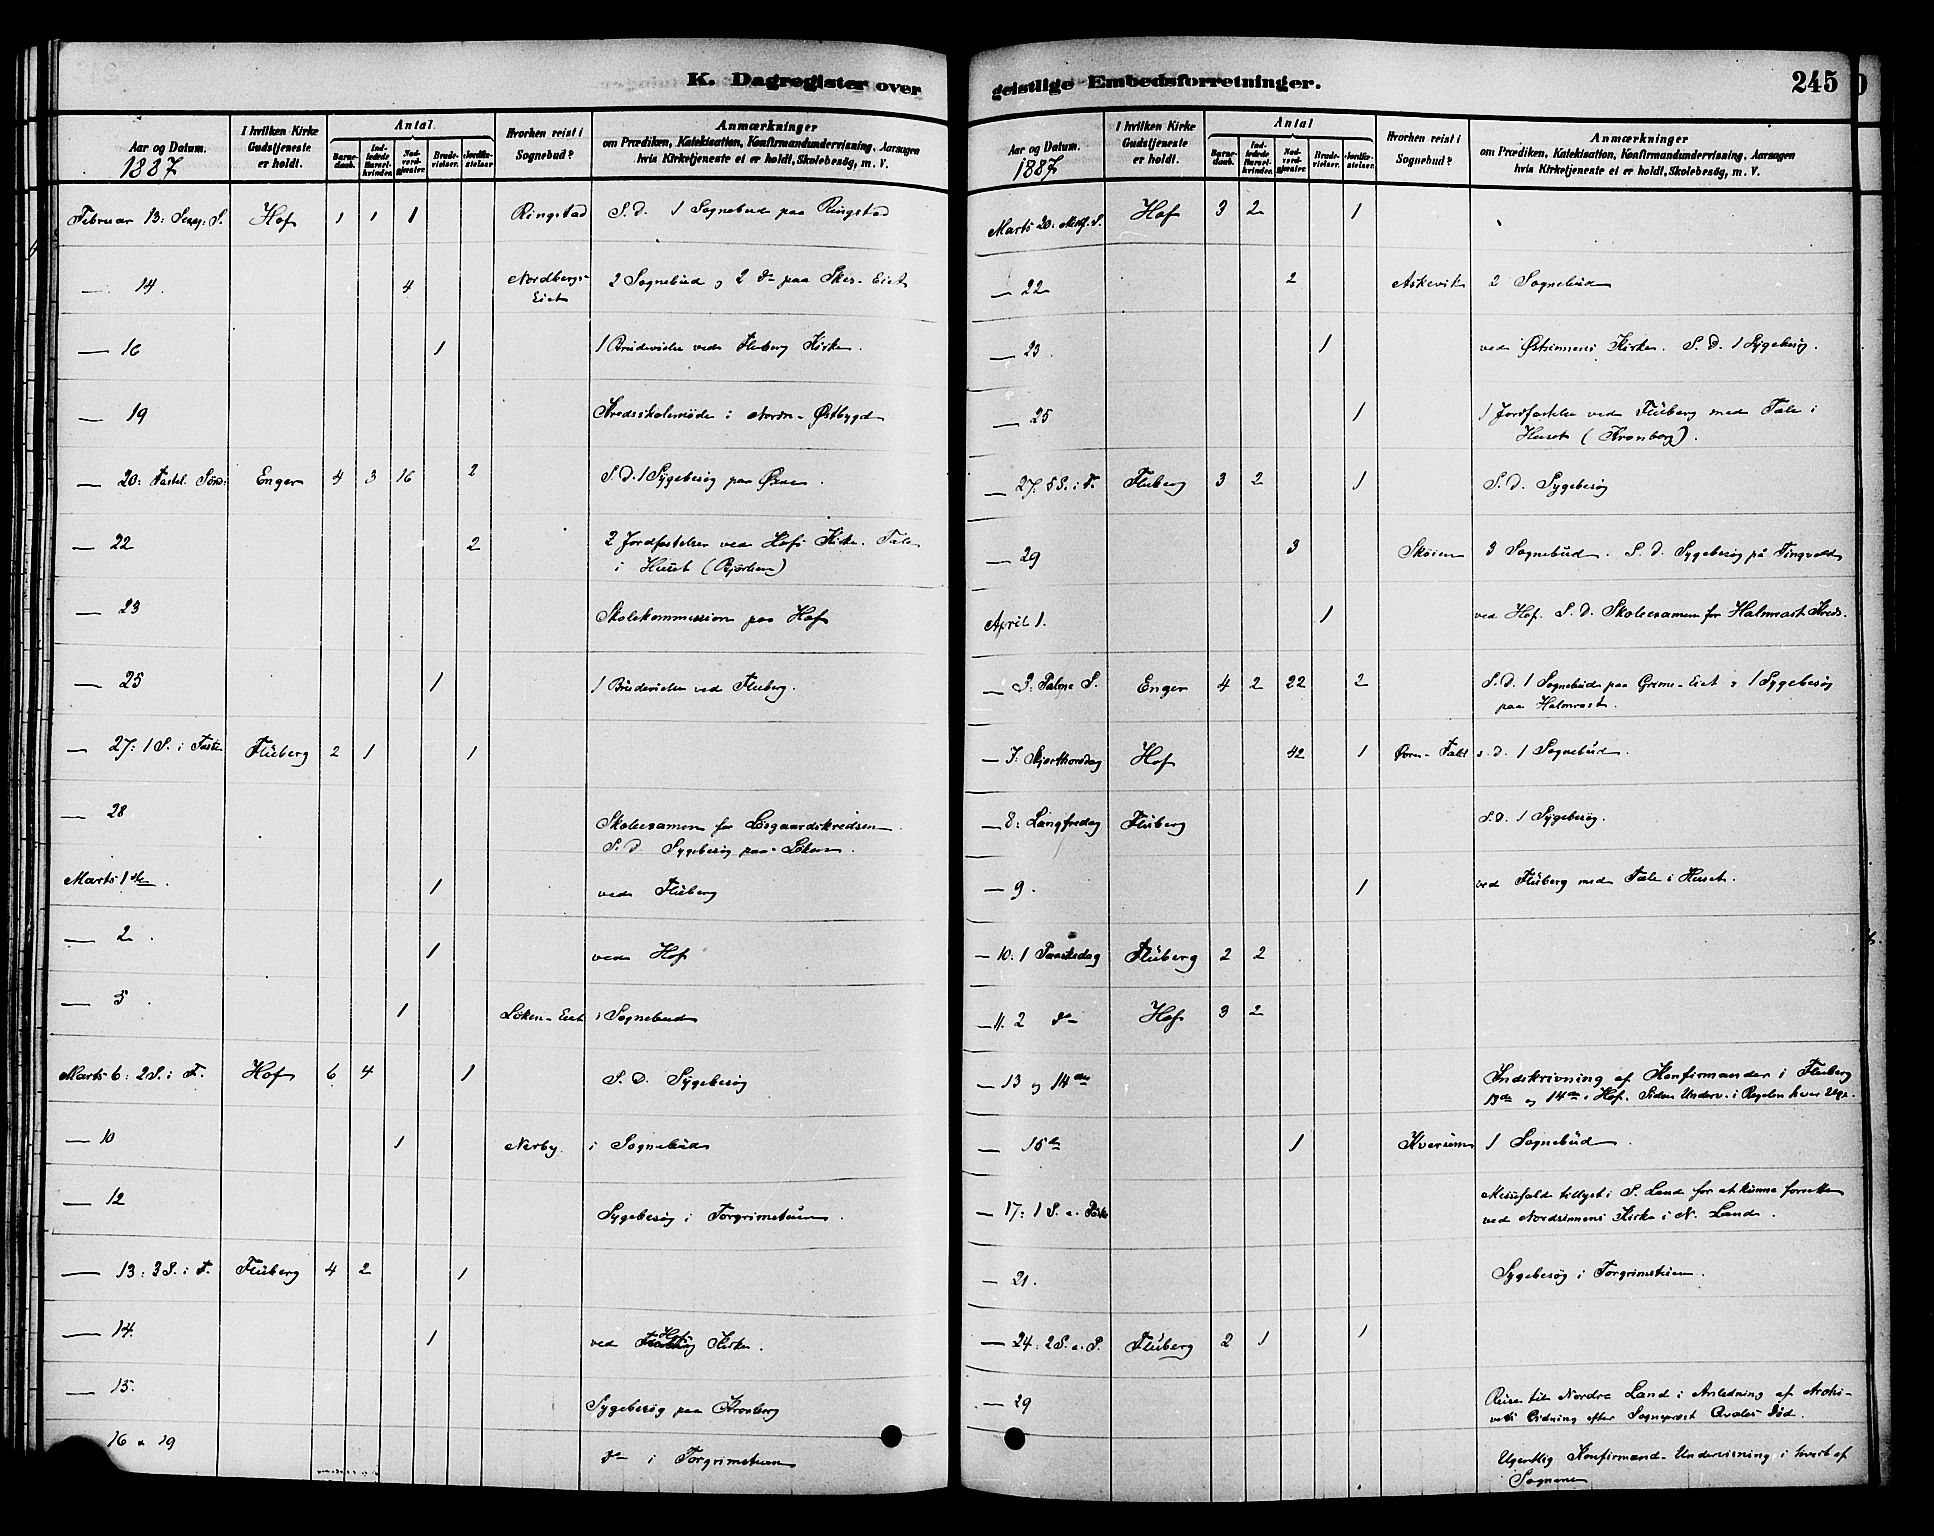 K. Dagregister over
Aar og Datum.
1887
I hvilken Kirke
Gudstjeneste
er holdt.
Antal.
Barne-
daab.
Ind-
ledede
Barsel-
kvinder.
Nad-
verd-
gjester.
Brude-
vielser.
Jordfæ-
stelser.
Hvorhen reist i
Sognebud?
Anmærkninger
om Prædiken, Katekisation, Konfirmandundervisning, Aarsagen
hvis Kirketjeneste ei er holdt, Skolebesøg, m. V.
Februar 13: Sexag. S. Hof 1 1 1 Ringstad S. D. 1 Sognebud paa Ringstad
— 14. 4 Nordbergs- 2 Sognebud og 2 do paa Skes-Eiet
Eiet
— 16 1 1 Brudevielse ved Fluberg Kirke.
— 19 Kredsskolemøde i Nordre-Østbygd
— 20: Fastel. Sønd: Enger 4 3 16 2 S. D. 1 Sygebesøg paa
— 22 2 2 Jordfæstelser ved Hofs Kirke. Tale
i Huset (Bjørlien)
— 23 Skolekommission paa Hof
— 25 1 1 Brudevielse ved Fluberg.
— 27: 1 S. i Faste Fluberg 2 1 1
— 28 Skoleexamen for Løsgaardskredsen.
S. D. Sygebesøg paa
Marts 1ste. 1 ved Fluberg
— 2. 1 ved Hof
— 5. 1 Løken-Eiet 1 Sognebud
Marts 6: 2 S. i F. Hof 6 4 1 S. D. Sygebesøg
— 10 1 Nerby. 1 Sognebud
— 12 Sygebesøg i Torgrimstuen.
— 13: 3 S. i F. Fluberg 4 2 1
— 14. 1 ved Hofs Kirke.
— 15. Sygebesøg paa Kronborg
16 & 19 do i Torgrimstuen
geistlige Embedsforretninger.
245
Aar og Datum.
1887
I hvilken Kirke
Gudstjeneste
er holdt.
Antal
Barne-
daab.
Ind-
ledede
Barsel-
kvinder.
Nad-
verd-
gjester.
Brude-
vielser.
Jordfæ-
stelser.
Hvorhen reist i
Sognebud?
Anmærkninger
om Prædiken, Katekisation, Konfirmandundervisning, Aarsagen
hvis Kirketjeneste ei er holdt, Skolebesøg, m. V.
Marts 20: Midf. S. Hof 3 2 1
— 22 2 Askevik 2 Sognebud
— 23. 1 ved Østsinnens Kirke. S. D. 1 Sygebesøg.
— 25 1 1 Jordfæstelse ved Fluberg med Tale i
Huset (Kronborg).
— 27. 5 S. i F. Fluberg 3 2 1 S. D. Sygebesøg
— 29 3 Skøien 3 Sognebud. S. D. Sygebesøg på Tingvold
April 1. 1 ved Hof. S. D. Skoleexamen for Halmrast Kreds.
— 3: Palme S. Enger 4 2 22 2 S. D. 1 Sognebud paa Grime-Eiet & 1 Sygebesøg
paa Halmrast.
— 7. Skjærthorsdag Hof 42 1 s. D. 1 Sognebud.
— 8: Langfredag Fluberg S. D. 1 Sygebesøg.
— 9. 1 ved Fluberg med Tale i Huset.
— 10: 1 Paaskedag Fluberg 2 2
— 11. 2 do Hof 3 2
— 13 og 14de Indskrivning af Konfirmander i Fluberg
13de og 14de i Hof. Siden Underv. i Regelen hver Uge.
— 15de 1 Kversum 1 Sognebud.
— 17: 1 S. e. Påske Messefald tillyst i S. Land for at kunne forrette
ved Nordsinnens Kirke i N. Land.
— 21. Sygebesøg i Torgrimstuen.
— 24: 2 S. e. P. Fluberg 2 1 1
— 29 Reise til Nordre Land i Anledning af Arohi-
vets Ordning efter Sogneprest Død.
Ugentlig Konfirmand-Undervisning i hvert af
Sognene